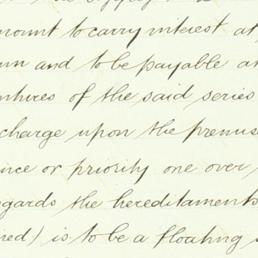 mount to carry interest at
um and to be payable a
ntures of the said series
charge upon the premis
nce or priority one over
gards the hereditaments
red) is to be a floating s